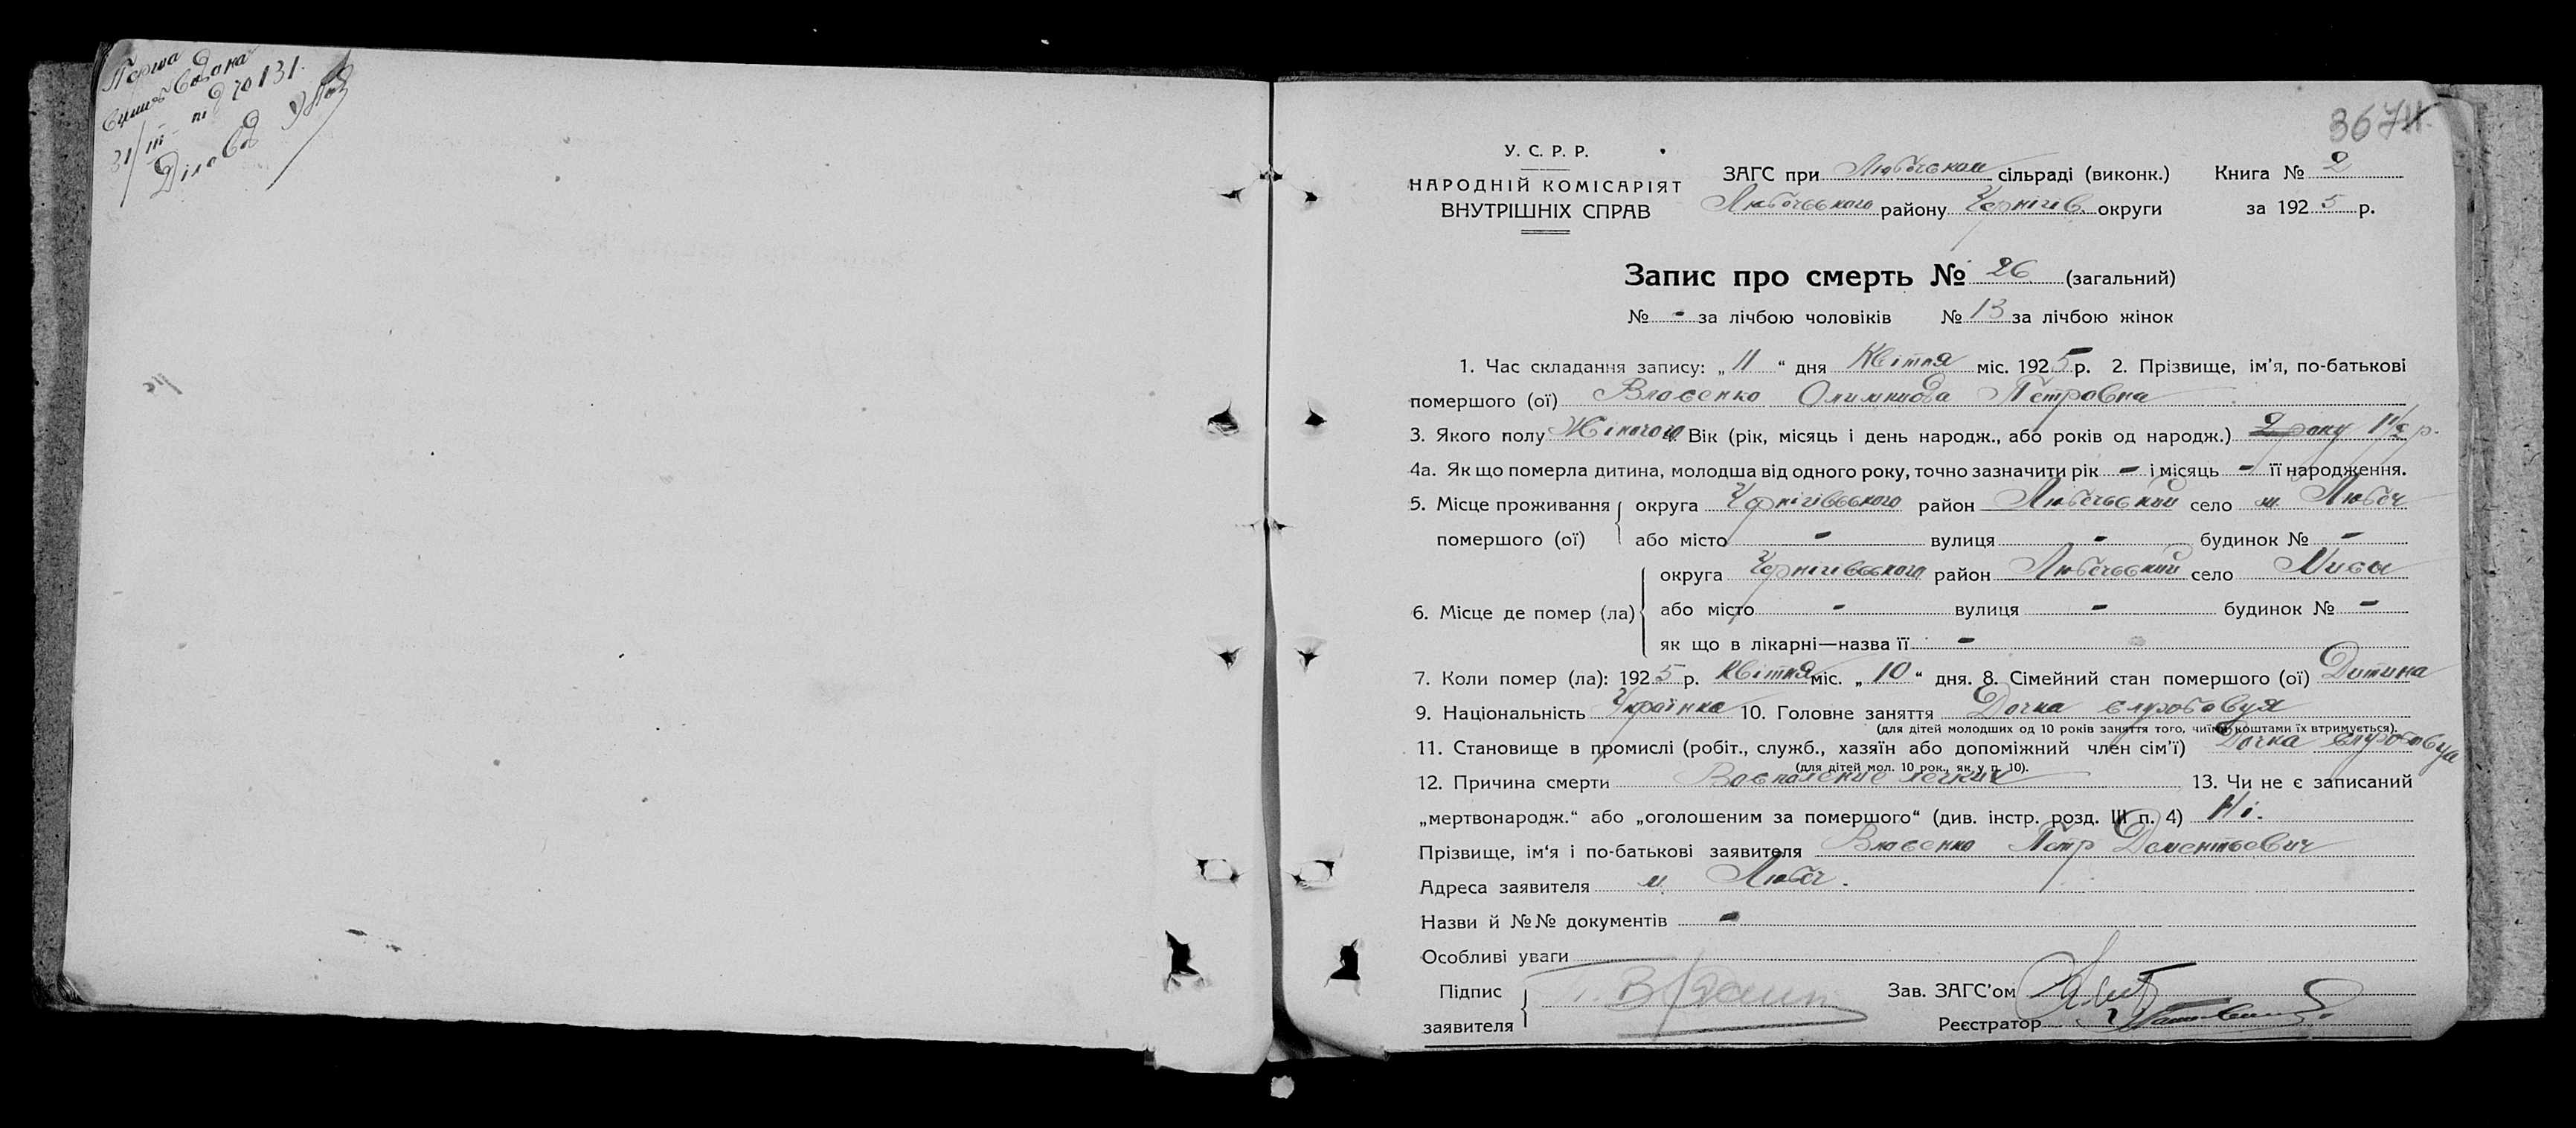 Перша
видана
31/III під № 131.
Діловод
367
У. С. Р. Р.
НАРОДНІЙ КОМІСАРІЯТ
ВНУТРІШНІХ СПРАВ
ЗАГС при Любечском сільраді (виконк.)
Любечського району Чернігів. округи
Книга № 2
за 1925 р.
Запис про смерть № 26 (загальний)
№ - за лічбою чоловіків № 13 за лічбою жінок
1. Час складання запису: „11“ дня Квітня міс. 1925 р. 2. Прізвище, ім'я, по-батькові
помершого (ої) Власенко Олимпиада Петровна
3. Якого полу Жіночого 4. Вік (рік, місяць і день народж., або років од народж.) 2 року 1½ р.
4а. Як що померла дитина, молодша від одного року, точно зазначити рік - і місяць - її народження.
5. Місце проживання помершого (ої)
округа Чернігівського район Любечський село м. Любеч
або місто - вулиця - будинок № -
6. Місце де помер (ла)
округа Чернігивського район Любечський село Мисы
або місто - вулиця - будинок № -
як що в лікарні—назва її -
7. Коли помер (ла): 1925 р. Квітня міс. „10“ дня. 8. Сімейний стан помершого (ої) Дитина
9. Національність Українка 10. Головне заняття Дочка службовця
(для дітей молодших од 10 років заняття того, чиїми коштами їх втримується).
11. Становище в промислі (робіт., служб., хазяїн або допоміжний член сім'ї) Дочка службовця
(для дітей мол. 10 рок., як у п. 10).
12. Причина смерти Воспаление легких 13. Чи не є записаний
„мертвонародж.“ або „оголошеним за помершого“ (див. інстр. розд. III п. 4) Ні.
Прізвище, ім‘я і по-батькові заявителя Власенко Петр Дементьевич
Адреса заявителя м. Любеч.
Назви й №№ документів -
Особливі уваги
Підпис заявителя
Зав. ЗАГС'ом
Реєстратор